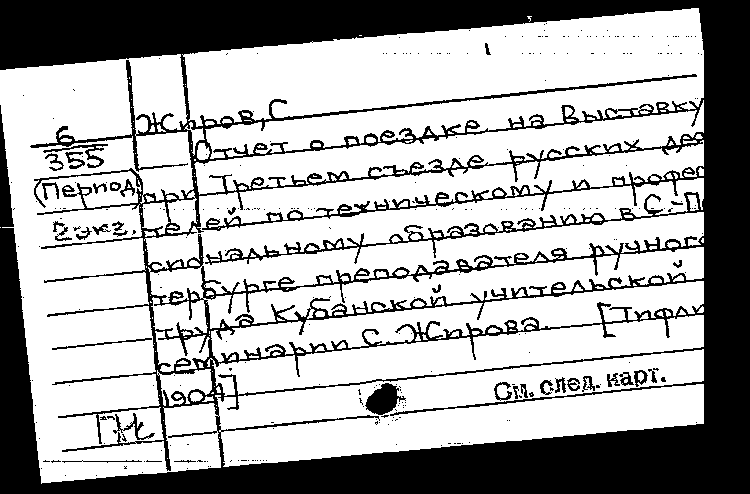 Жиров, С
6
355
(Период)
2 экз.
Отчет о поездке на Выставку
при Третьем съезде русских дея
телей по техническому и профес
сиональному образованию в С.-Пе
тербурге преподавателя ручного
труда Кубанской учительской
семинарии С. Жирова. [Тифли
1904]
См. след. карт.